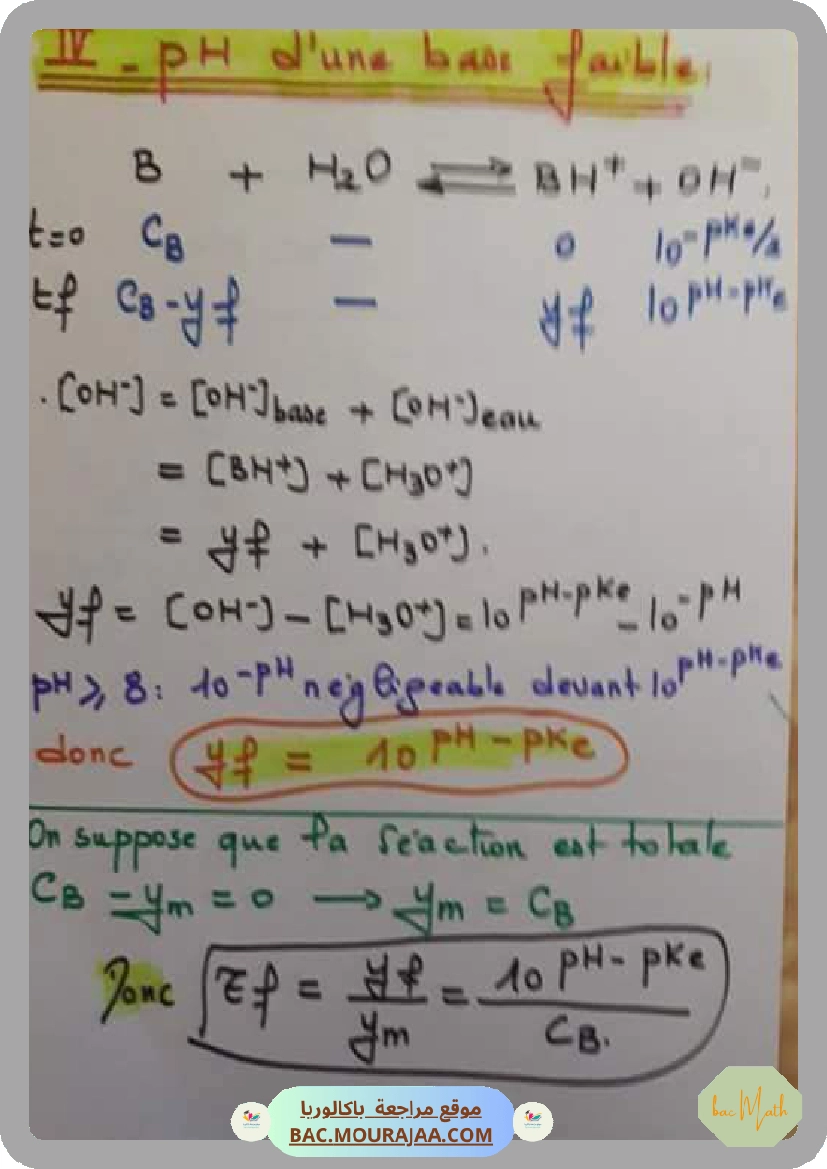 IV - pH d'une base faible.
B + H₂O ⇌ BH⁺ + OH⁻.
t=0 C_B — 0 10^-pKe/2
tf C_B - yf — yf 10^pH-pKe
. [OH⁻] = [OH⁻]base + [OH⁻]eau
= [BH⁺] + [H₃O⁺]
= yf + [H₃O⁺].
yf = [OH⁻] - [H₃O⁺] = 10^pH-pKe - 10^-pH
pH ⩾ 8 : 10^-pH négligeable devant 10^pH-pKe
donc yf = 10^pH-pKe
On suppose que la réaction est totale
C_B - ym = 0 → ym = C_B
Donc τf = yf/ym = 10^pH-pKe/C_B.
موقع مراجعة باكالوريا
BAC.MOURAJAA.COM
bac Math